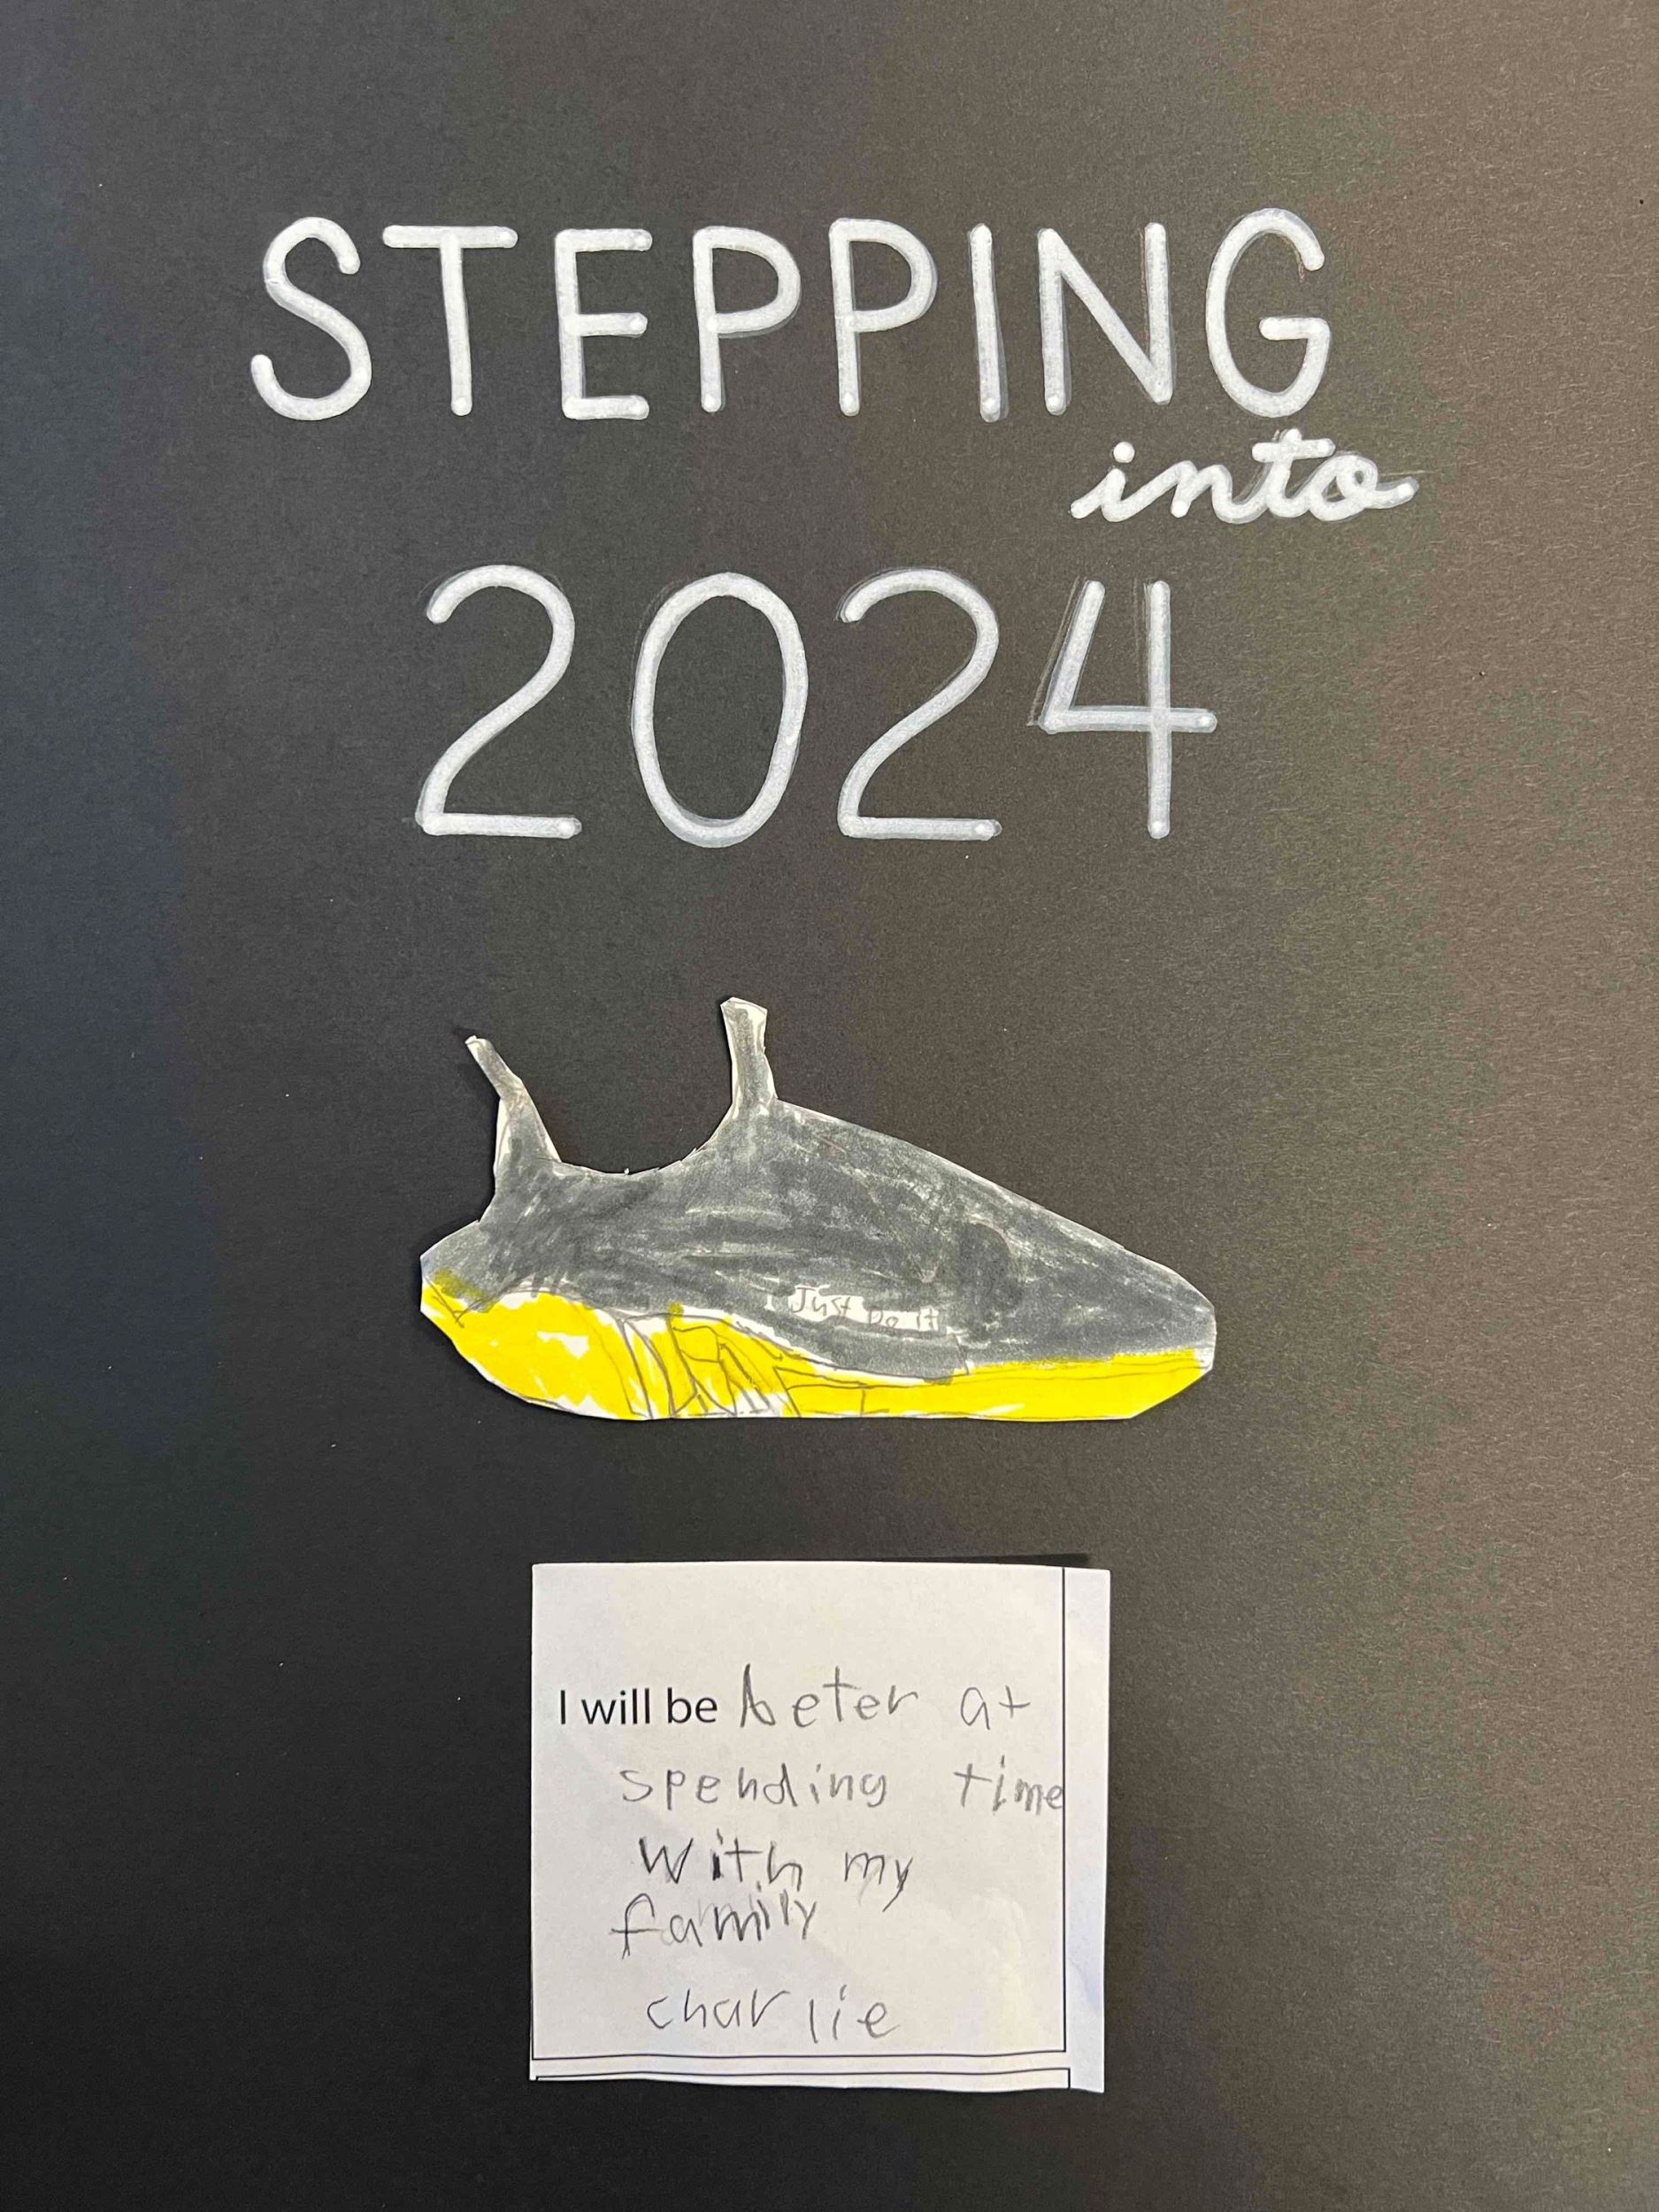 STEPPING
into
2024
Just Do it
I will be beter at
spending time
with my
family
charlie